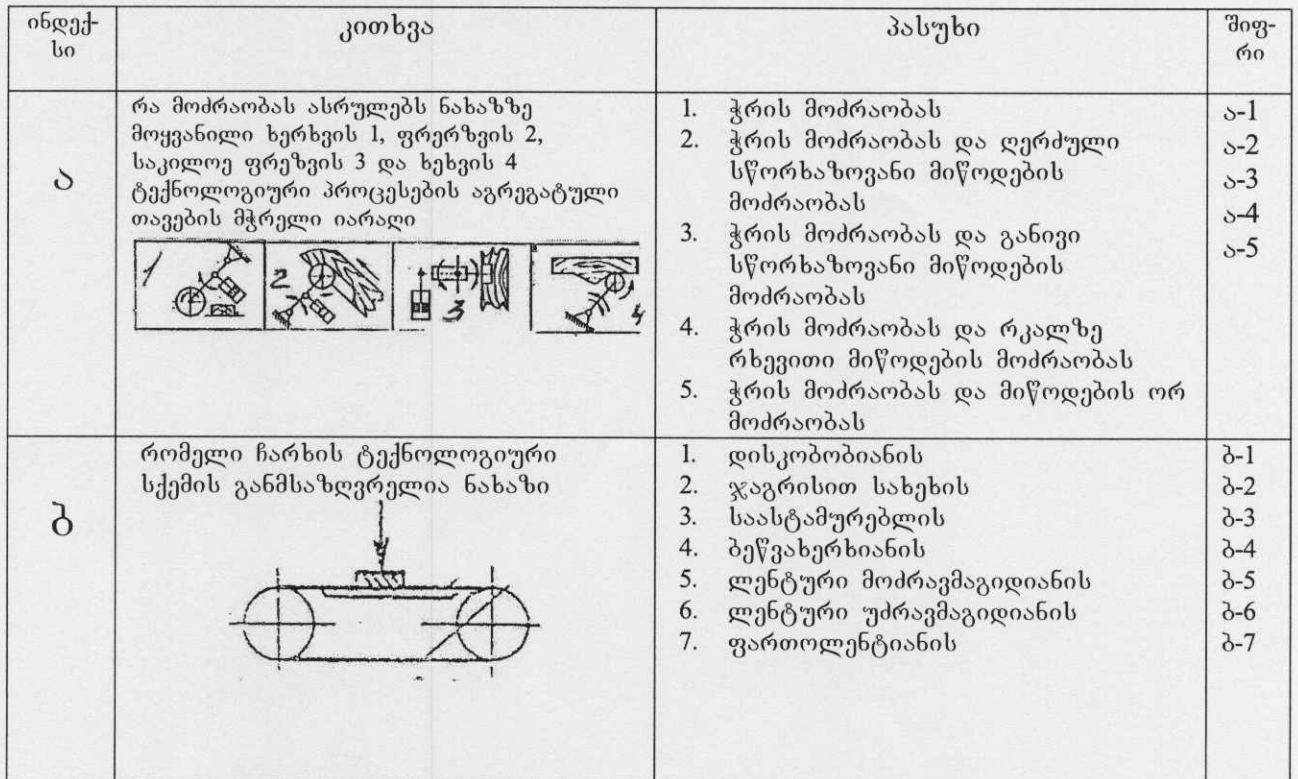 ინდექ-
სი
კითხვა
პასუხი
შიფ-
რი
ა
რა მოძრაობას ასრულებს ნახაზზე
მოყვანილი ხერხვის 1, ფრერზვის 2,
საკილოე ფრეზვის 3 და ხეხვის 4
ტექნოლოგიური პროცესების აგრეგატული
თავების მჭრელი იარაღი
1
2
3
4
1. ჭრის მოძრაობას
2. ჭრის მოძრაობას და ღერძული
სწორხაზოვანი მიწოდების
მოძრაობას
3. ჭრის მოძრაობას და განივი
სწორხაზოვანი მიწოდების
მოძრაობას
4. ჭრის მოძრაობას და რკალზე
რხევითი მიწოდების მოძრაობას
5. ჭრის მოძრაობას და მიწოდების ორ
მოძრაობას
ა-1
ა-2
ა-3
ა-4
ა-5
ბ
რომელი ჩარხის ტექნოლოგიური
სქემის განმსაზღვრელია ნახაზი
1. დისკობობიანის
2. ჯაგრისით სახეხის
3. საასტამურებლის
4. ბეწვახერხიანის
5. ლენტური მოძრავმაგიდიანის
6. ლენტური უძრავმაგიდიანის
7. ფართოლენტიანის
ბ-1
ბ-2
ბ-3
ბ-4
ბ-5
ბ-6
ბ-7